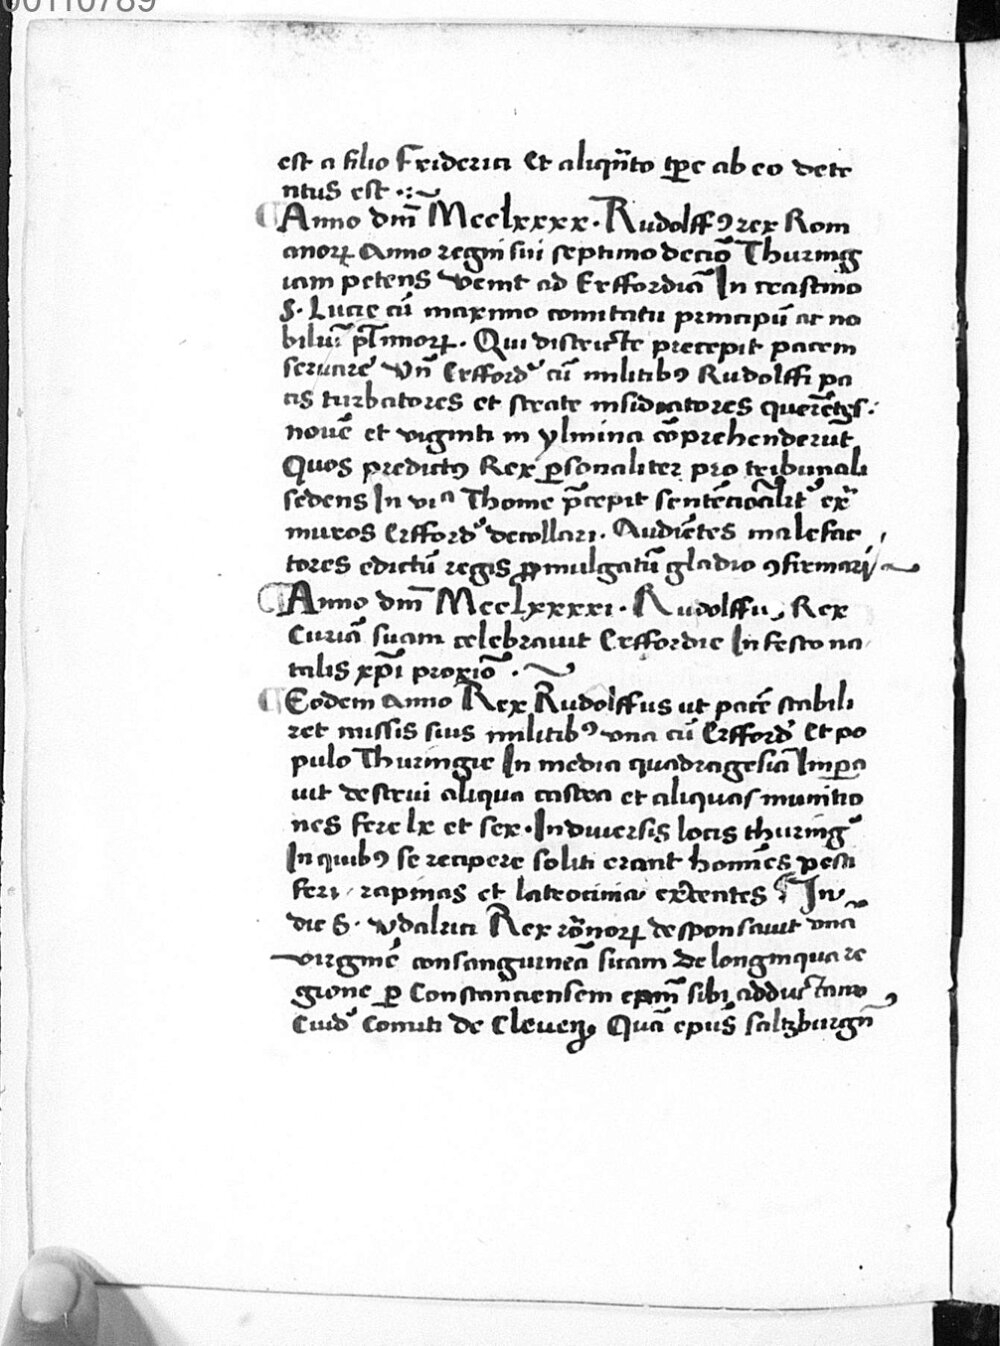 00110789
est a filio Friderici Et aliqn̄to tp̱e ab eo dete
ntus est
¶ Anno dm̄ Mcclxxxx. Rudolffꝯ rex Rom
anorꝝ Anno regni sui septimo decīo Thuring
iam petens venit ad Erffordiā In crastino
S. Lucie cū maximo comitatu principū ac no
biliū Qui districte precepit pacem
seruare Vn̄ Erfford' cū militibꝯ Rudolffi pa
cis turbatores et strate insidiatores querētes.
nouē et viginti in ylmina cōprehenderūt
Quos predictꝯ Rex ꝑsonaliter pro tribunali
sedens In viᵃ Thome p̄cepit ex̄
muros Erfford' decollari. Audiētes malefac
tores edictū regis ꝓmulgatū gladio ꝯfirmari
¶ Anno dm̄ Mcclxxxxi. Rudolffu, Rex
Curiā suam celebrauit Erffordie In festo na
talis xp̄i proxīo.
¶ Eodem anno Rex Rudolffus ut pacē stabili
ret missis suis militibꝯ vna cū Erfford' Et po
pulo Thuringie In media quadragesiā Imꝑa
uit destrui aliqua castra et aliquas munitio
nes fere lx et sex. In diuersis locis thuring'
In quibꝯ se recipere soliti erant homīes pesti
feri rapinas et latrocinia ex̄centes ¶ In
die S. vdalrici Rex rōnorꝝ desponsauit vnā
virginē consanguineā suam de longinqua re
gione ꝑ Constanciensem epm̄ sibi adductam
Cuidā Comiti de Cleuen, Quā epūs saltzburgn̄